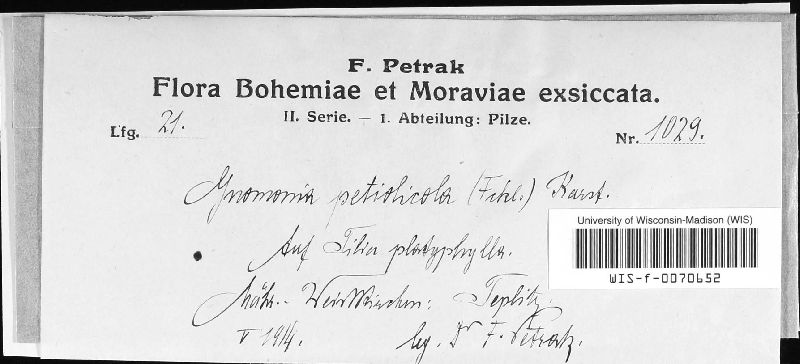 F. Petrak
Flora Bohemiae et Moraviae exsiccata.
II. Serie. – 1. Abteilung: Pilze.
Lfg. 21.
Nr. 1029.
Gnomonia petiolicola (Fckl.) Karst.
Auf Tilia platyphylla.
Mähr.-Weisskirchen: Teplitz.
V 1914. leg. Dr F. Petrak.
University of Wisconsin-Madison (WIS)
WIS-f-0070652